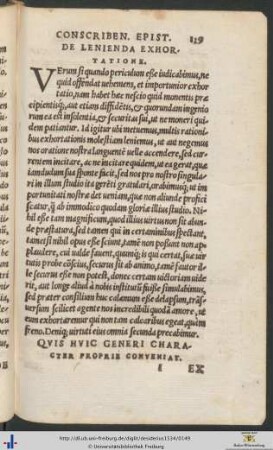 CONSCRIBEN. EPIST. 119
DE LENIENDA EXHOR-
TATIONE.
VErum si quando periculum esse iudicabimus, ne
quid offendat uehemens, et importunior exhor
tatio, nam habet hæc nescio quid monentis præ
cipientisq́;, aut etiam diffidētis, & quorundam ingenio
rum ea est insolentia, & securitas sui, ut ne moneri qui-
dem patiantur. Id igitur ubi metuemus, multis rationi-
bus exhortationis molestiam leniemus, ut aut negemus
nos oratione nostra languentē uelle accendere, sed cur-
rentem incitare, ac ne incitare quidem, ut ea gerat, quæ
iam dudum sua sponte facit, sed nos pro nostro singula-
ri in illum studio ita gerēti gratulari, orabimusq́; ut im
portunitati nostræ det ueniam, quæ non aliunde profici
scatur, q̃ ab immodico quodam gloriæ illius studio. Ni-
hil esse tam magnificum, quod illius uirtus non sit abun
de præstatura, sed tamen qui in certaminibus spectant,
tametsi nihil opus esse sciunt, tamē non possunt non ap
plaudere, cui ualde fauent, quamq́; is qui certat, suæ uir
tutis probe cōscius, securus sit ab animo, tamē fautor il-
le securus esse non potest, donec certam uictoriam uide
rit, aut longe aliud à nobis institutū fuisse simulabimus,
sed præter consilium huc calamum esse delapsum, trās-
uersum scilicet agente nos incredibili quodā amore, ut
eum exhortaremur qui non tam calcaribus egeat, quàm
freno. Deniq́; uirtuti eius omnia secunda precabimur.
QVIS HVIC GENERI CHARA-
CTER PROPRIE CONVENIAT.
I EX
http://dl.ub.uni-freiburg.de/diglit/desiderius1534/0149
© Universitätsbibliothek Freiburg